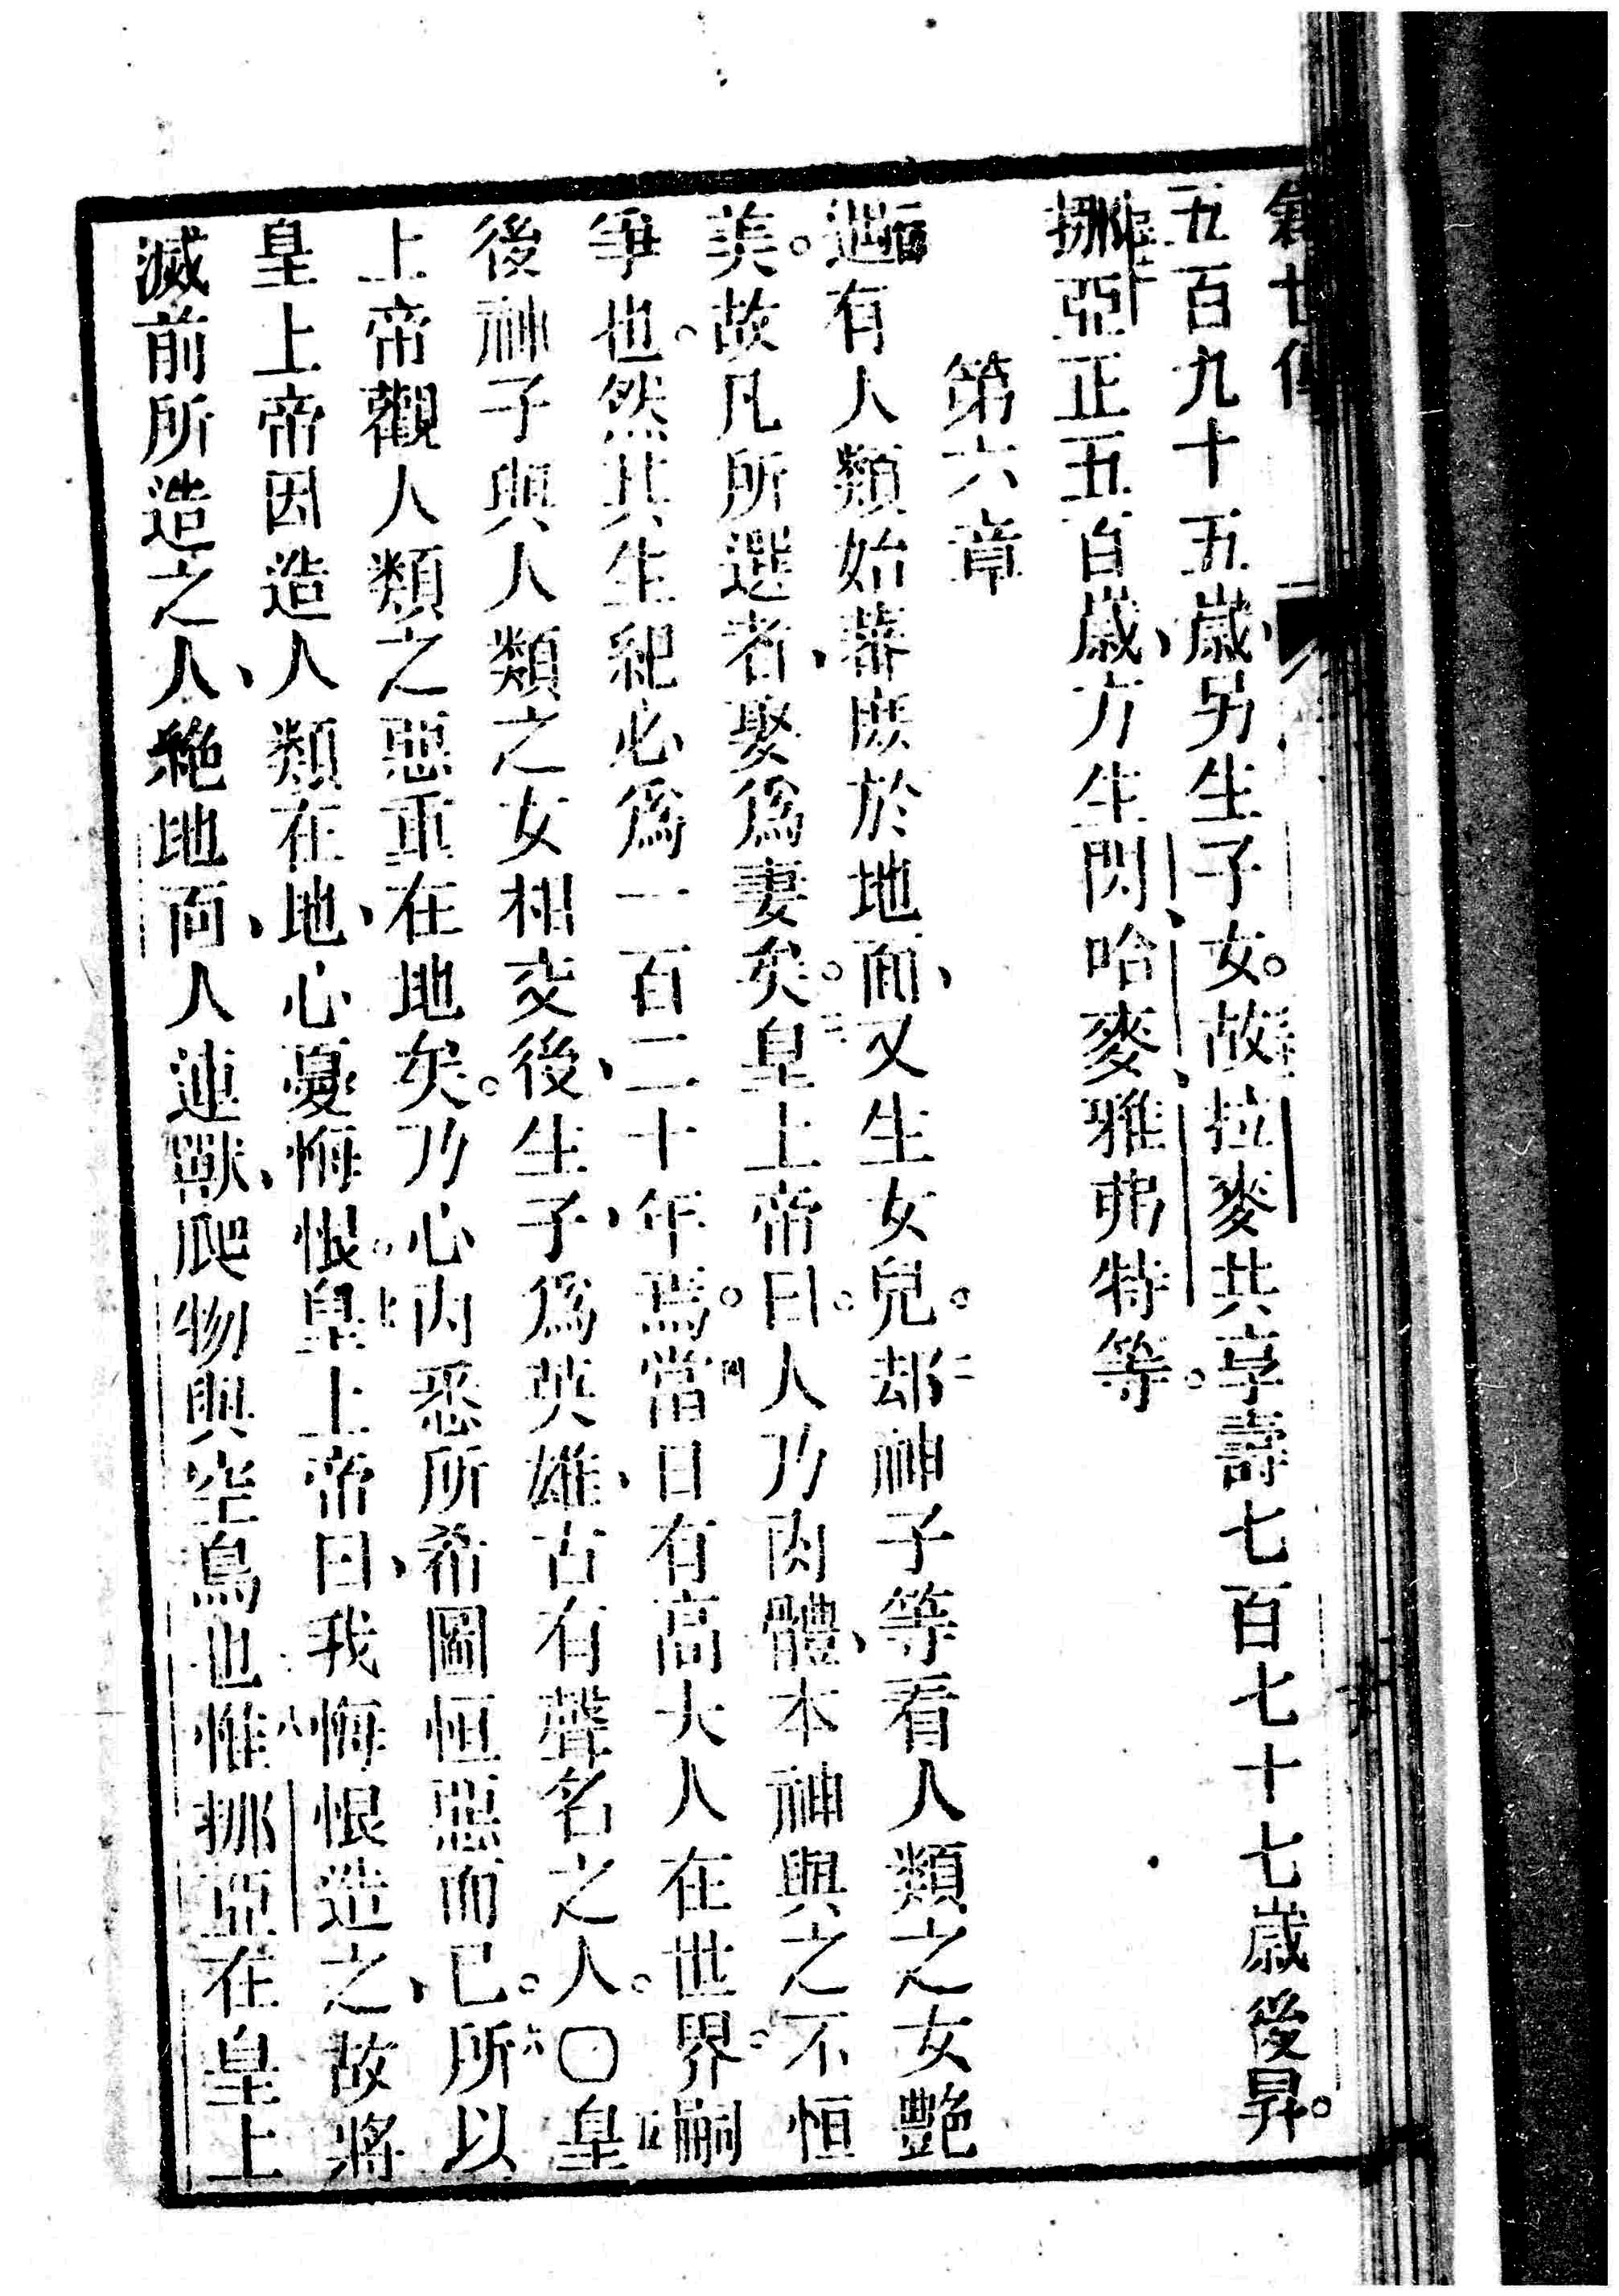 五百九十五歲、另生子女。故拉麥共享壽七百七十七歲後昇。
挪亞正五百歲、方生閃、哈麥、雅弗特等。
第六章
有人類始蕃庶於地面、又生女兒。二却神子等看人類之女艷
美。故凡所選者、娶爲妻矣。三皇上帝曰。人乃肉體、本神與之不恒
爭也。然其生紀必爲一百二十年焉。四當日有高大人在世界。嗣
後神子與人類之女相交後、生子、爲英雄、古有聲名之人。〇五皇
上帝觀人類之惡重在地矣。乃心內悉所希圖恒惡而已。六所以
皇上帝因造人類在地、心憂悔恨。七皇上帝曰、我悔恨造之、故將
滅前所造之人、絶地面、人連獸、爬物與空鳥也。八惟挪亞在皇上